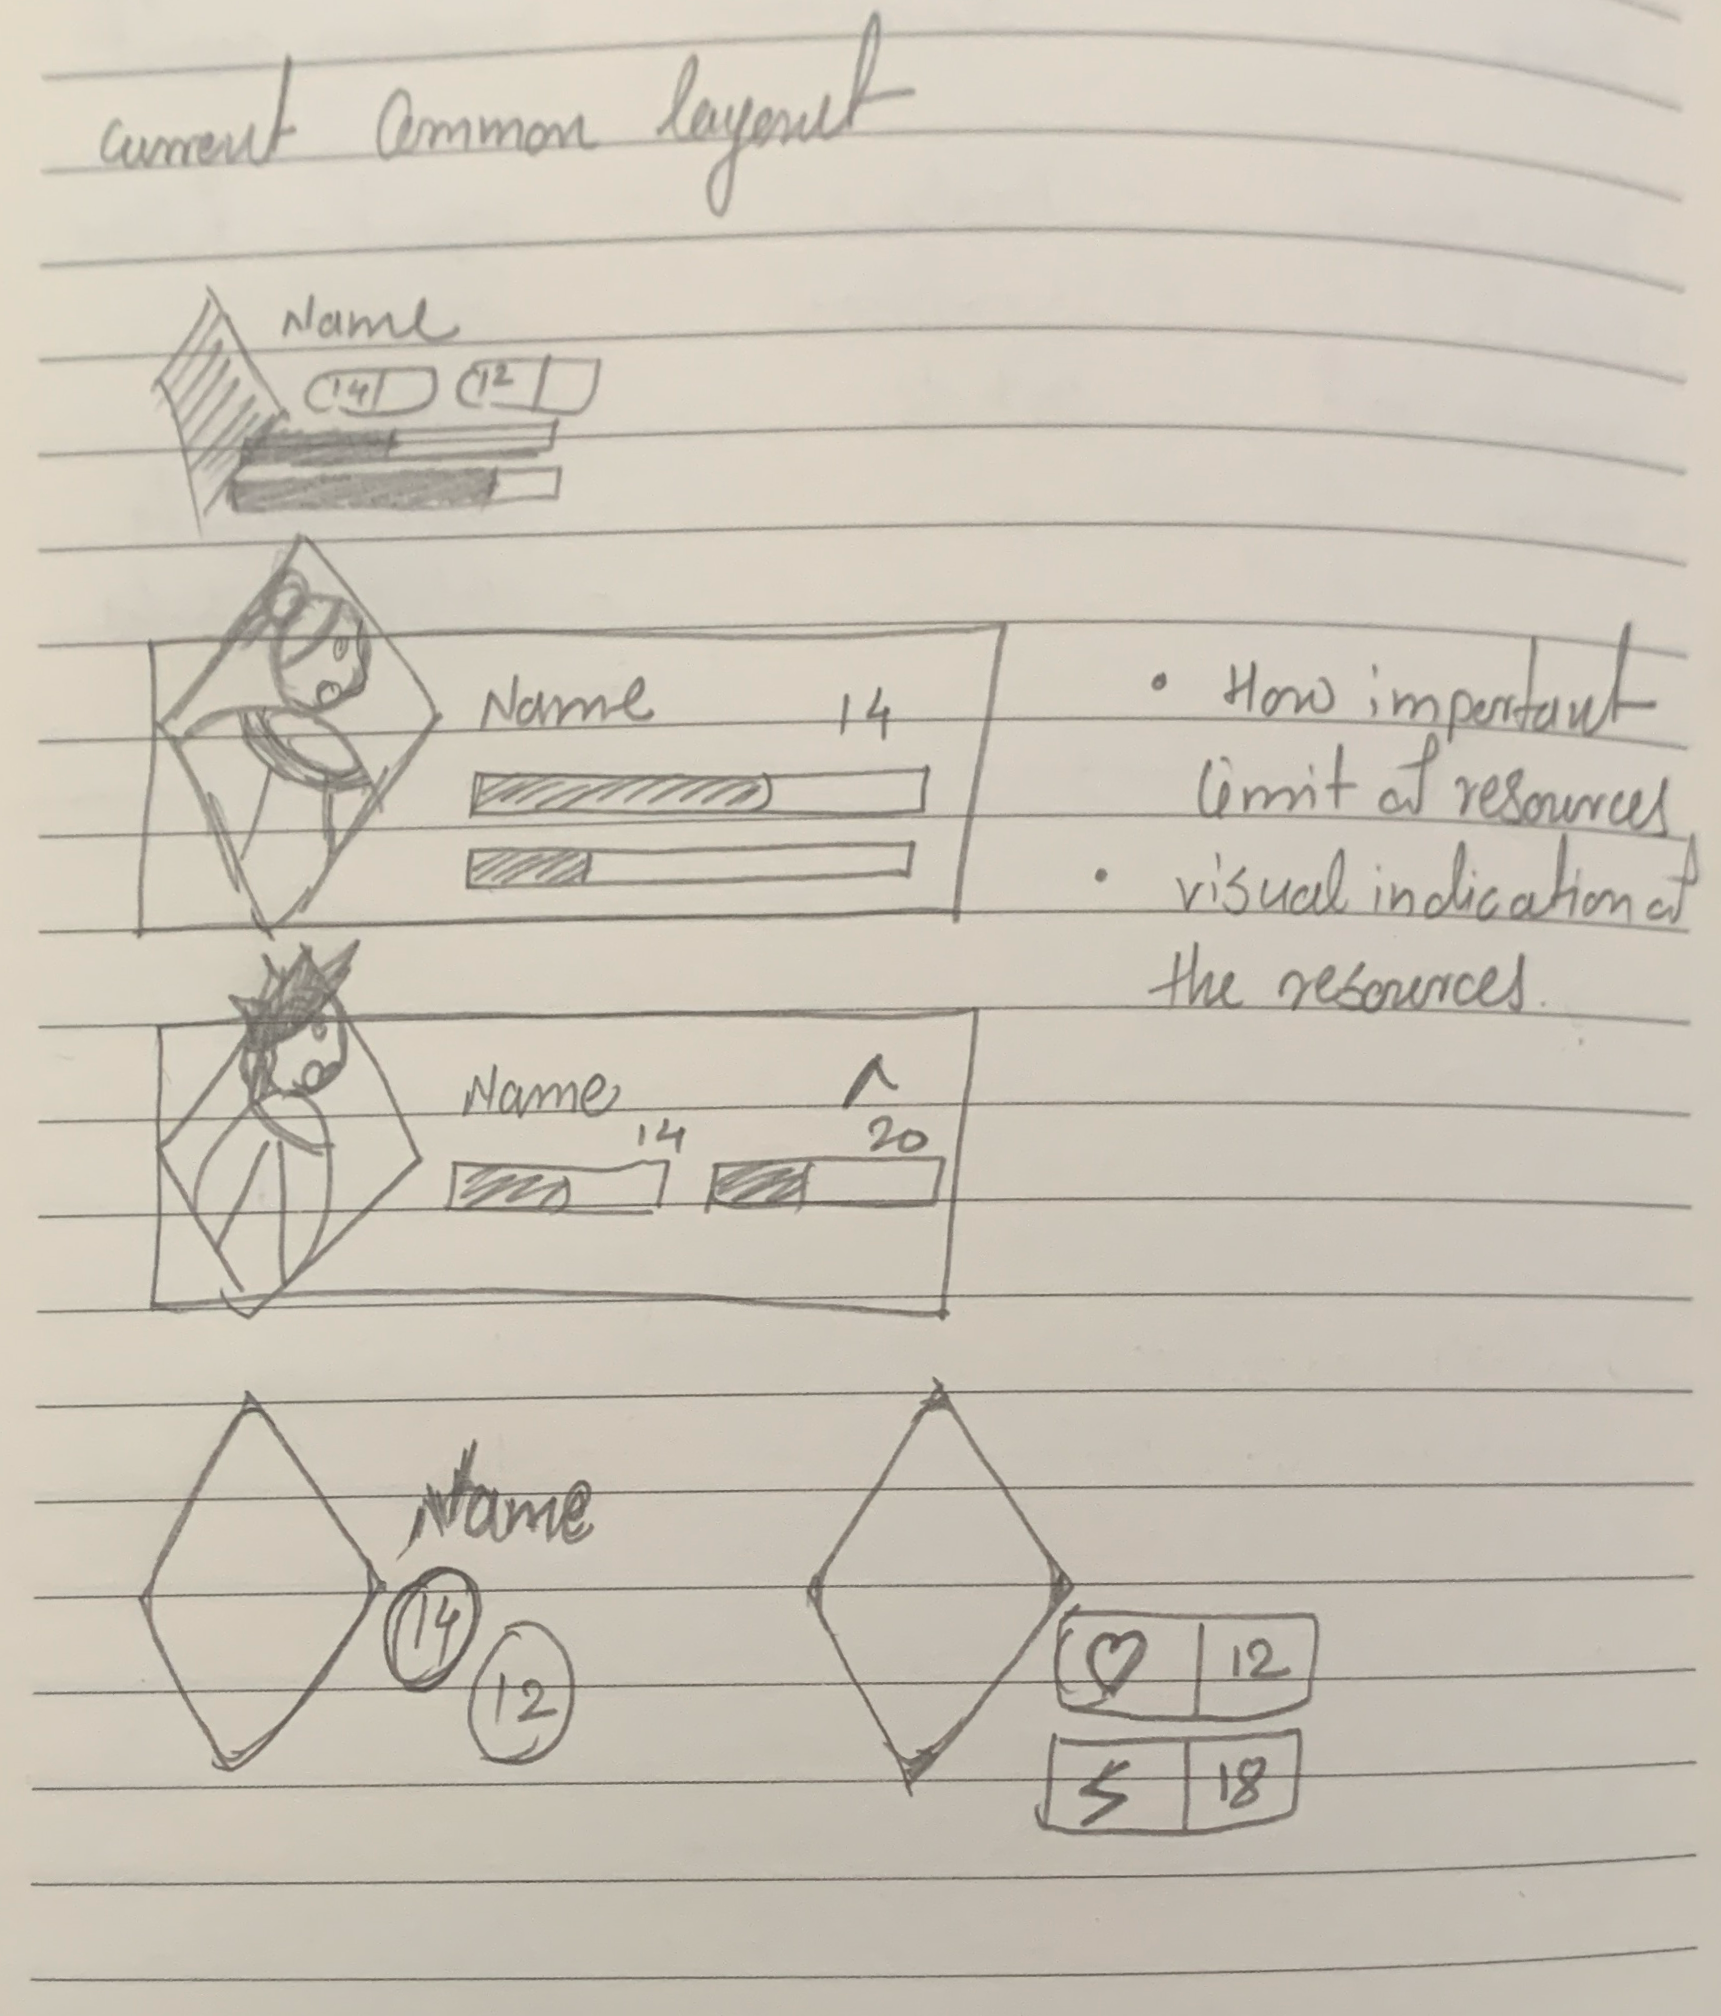 Current Common layout
Name
14 12
Name 14
• How important
limit of resources
• visual indication of
the resources.
Name
14 20
Name
14
12
12
18